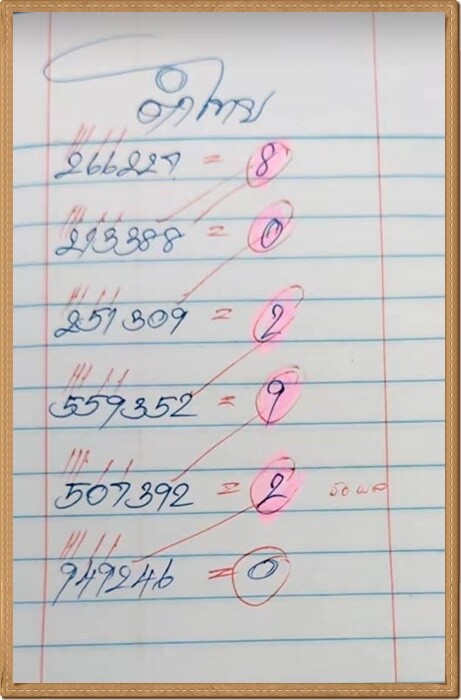 266227 = 8
213388 = 0
251309 = 2
559352 = 9
507392 = 2 รอผล
949246 = 0